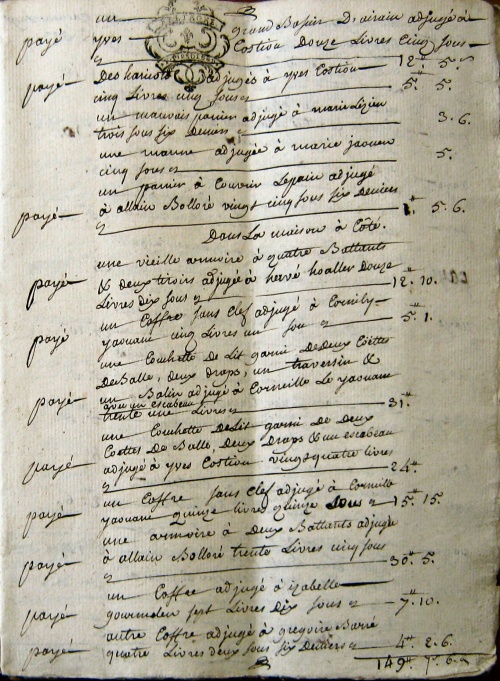 un grand Bassin D'airain adjugé à
payé yves Costiou Douze Livres Cinq sous
12# 5s
payé Des haricots adjugés à yves Costiou
cinq Livres cinq sous 5# 5.
un mauvais panier adjugé à marie Lezien
trois sous six Deniers 3. 6.
une manne adjugée à marie jaouen
cinq sous 5.
un panier à Couvrir Lepain adjugé
payé à allain Bolloré vingt cinq sous six Deniers
1# 5. 6.
Dans La maison à Côté.
une vieille armoire à quatre Battants
payé & deux tiroirs adjugé à hervé hoaller Douze
Livres Dix sous 12# 10.
un Coffre sans clef adjugé à Cornily
payé yaouanc cinq Livres un sou 5# 1.
une Couchette De Lit garni De Deux Coëttes
De Balle, deux draps, un traversin &
payé un Balin adjugé à Corneille Le yaouanc
avec un escabeau
trente une Livres 31#
une Couchette De Lit garni de Deux
Coettes De Balle, Deux Draps & un escabeau
payé adjugé à yves Costiou vingt quatre livres
24#
un Coffre sans Clef adjugé à Cornille
payé yaouanc quinze livres quinze sous 15# 15.
une armoire à Deux Battants adjugé
payé à allain Bolloré trente Livres cinq sous
30# 5.
un Coffre adjugé à izabelle
payé gourmelen sept Livres Dix sous 7# 10.
autre Coffre adjugé à gregoire Barré
payé quatre Livres deux sous six Deniers 4# 2. 6.
149#